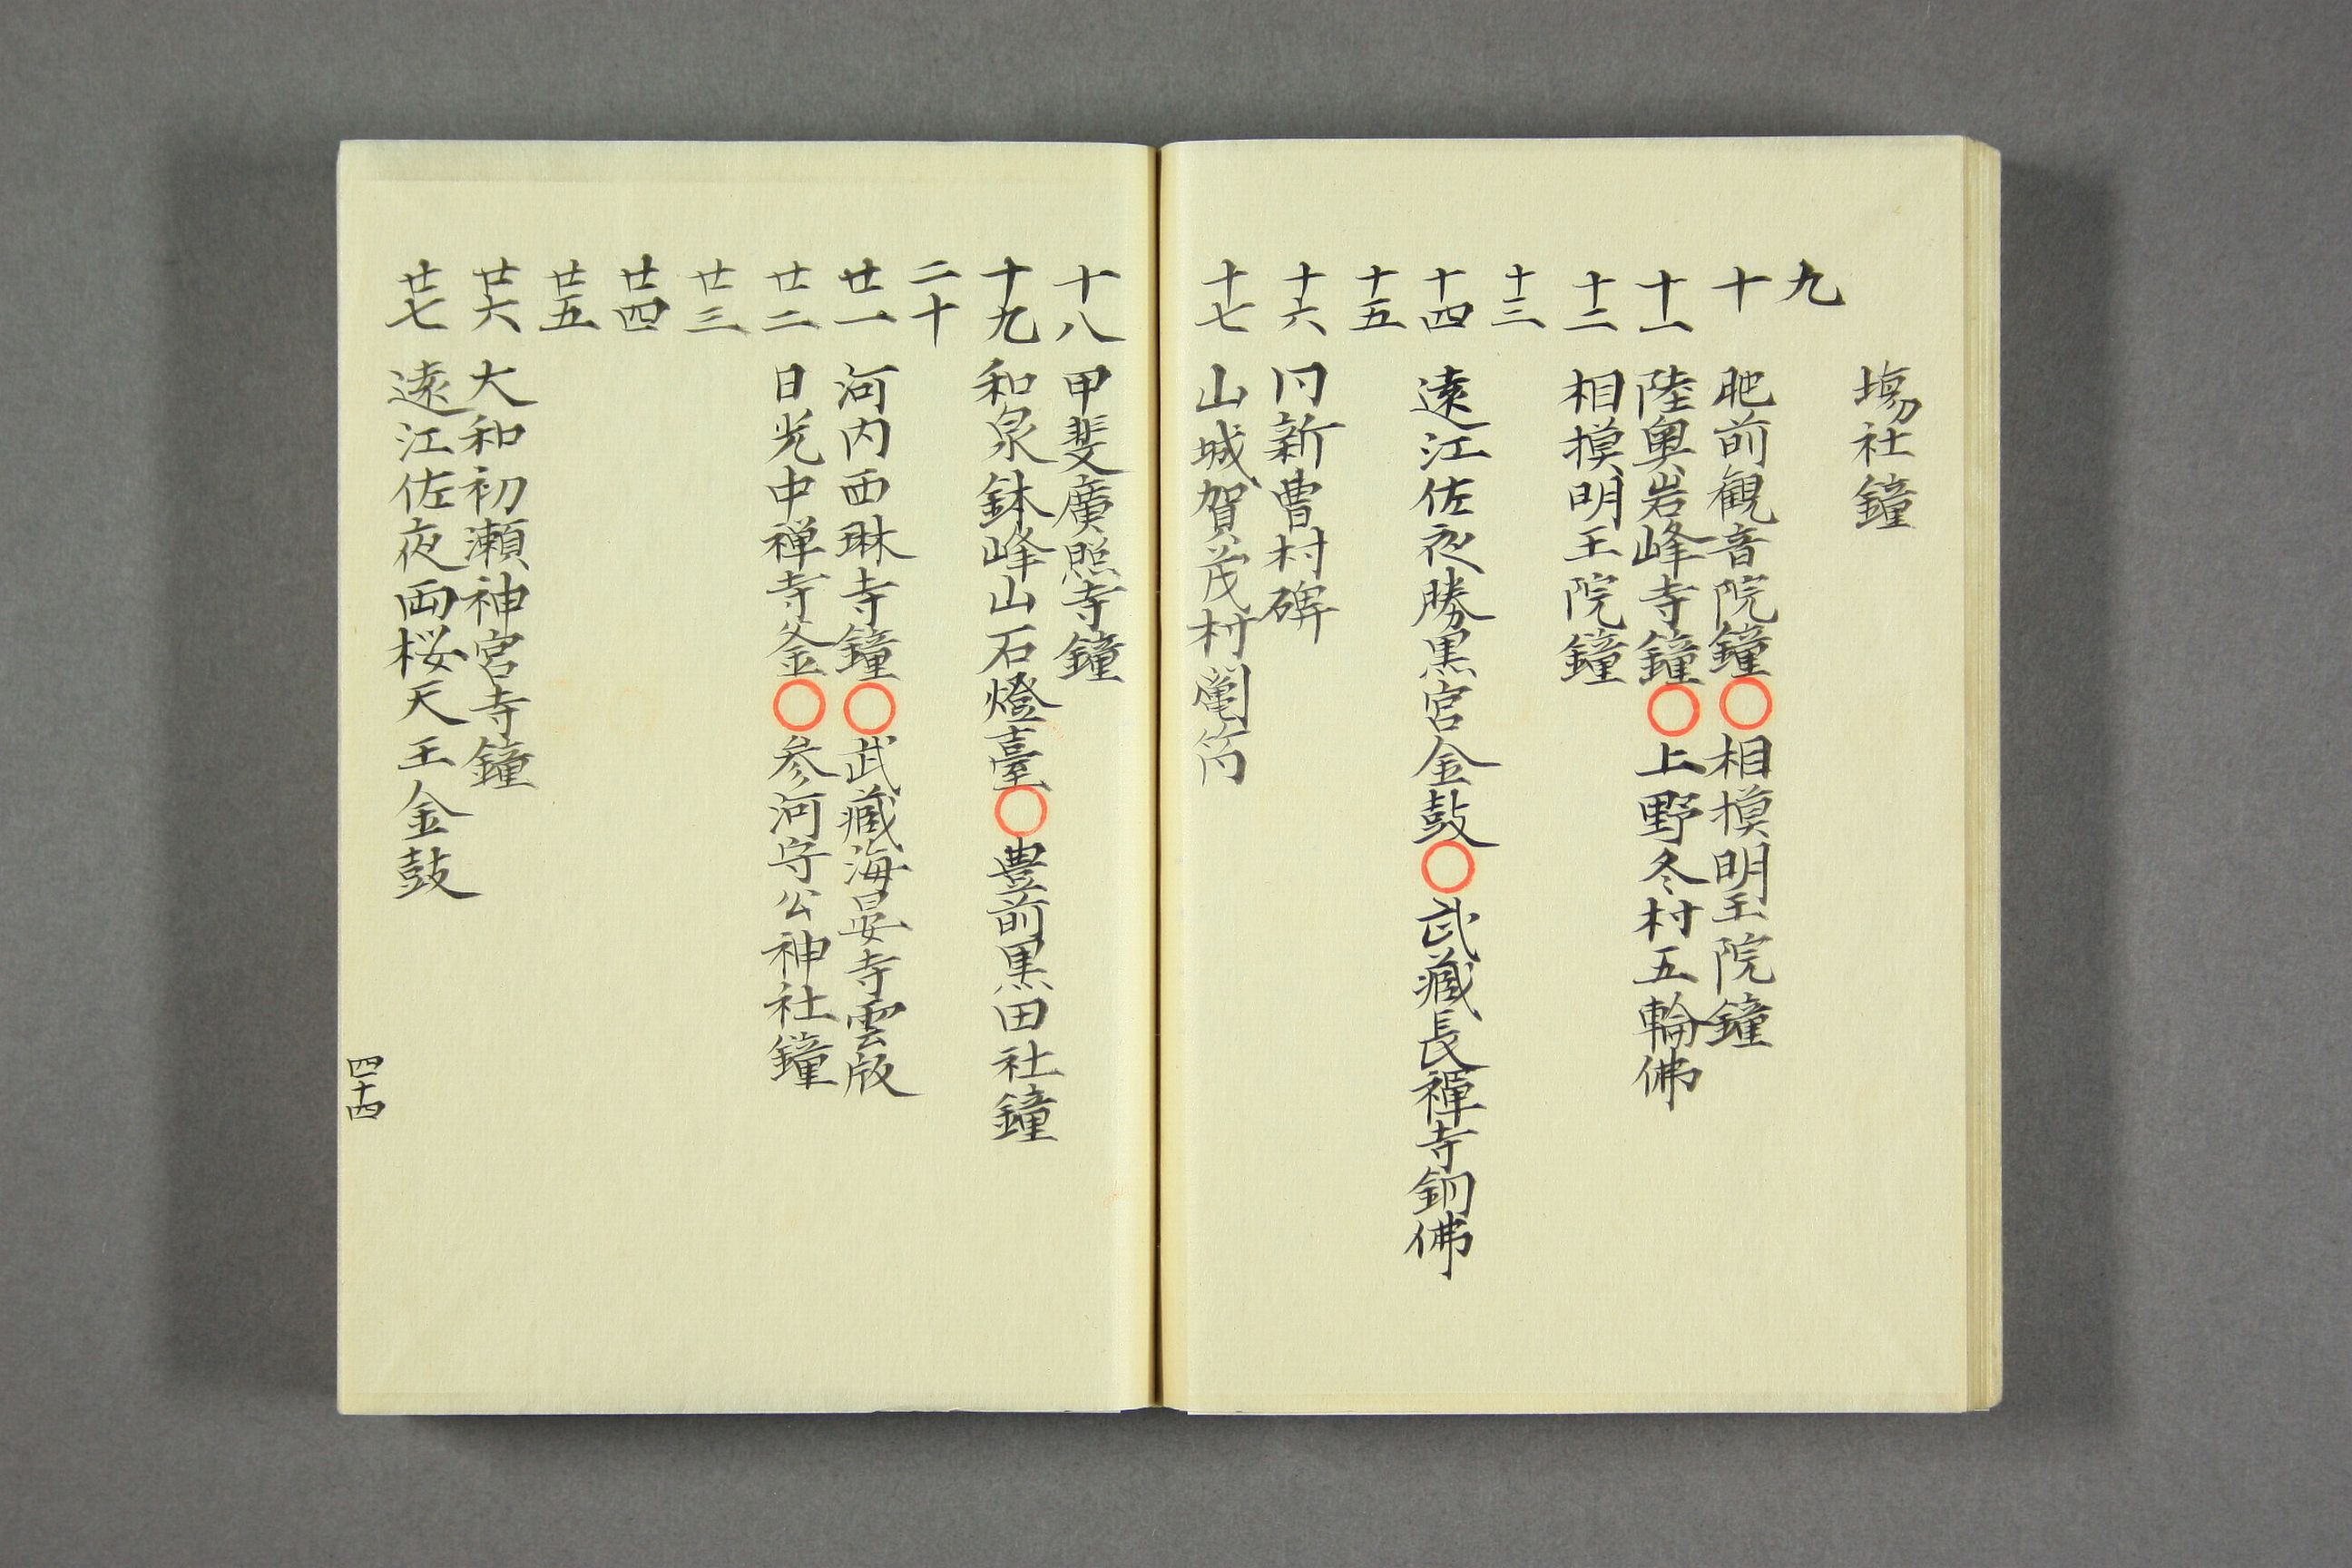 塲社鐘
九
十 肥前観音院鐘〇相摸明王院鐘
十一 陸奥岩峰寺鐘〇上野冬村五輪佛
十二 相摸明王院鐘
十三
十四 遠江佐夜勝黒宮金鼓〇武蔵長禪寺銅佛
十五
十六 新曹村碑
十七 山城賀茂村
十八 甲斐廣照寺鐘
十九 和泉鉢峰山石燈臺〇豊前黒田社鐘
二十
廿一 河内西琳寺鐘〇武蔵海晏寺雲版
廿二 日光中禅寺釜〇参河守公神社鐘
廿三
廿四
廿五
廿六 大和初瀬神宮寺鐘
廿七 遠江佐夜両桜天王金鼓
四十四